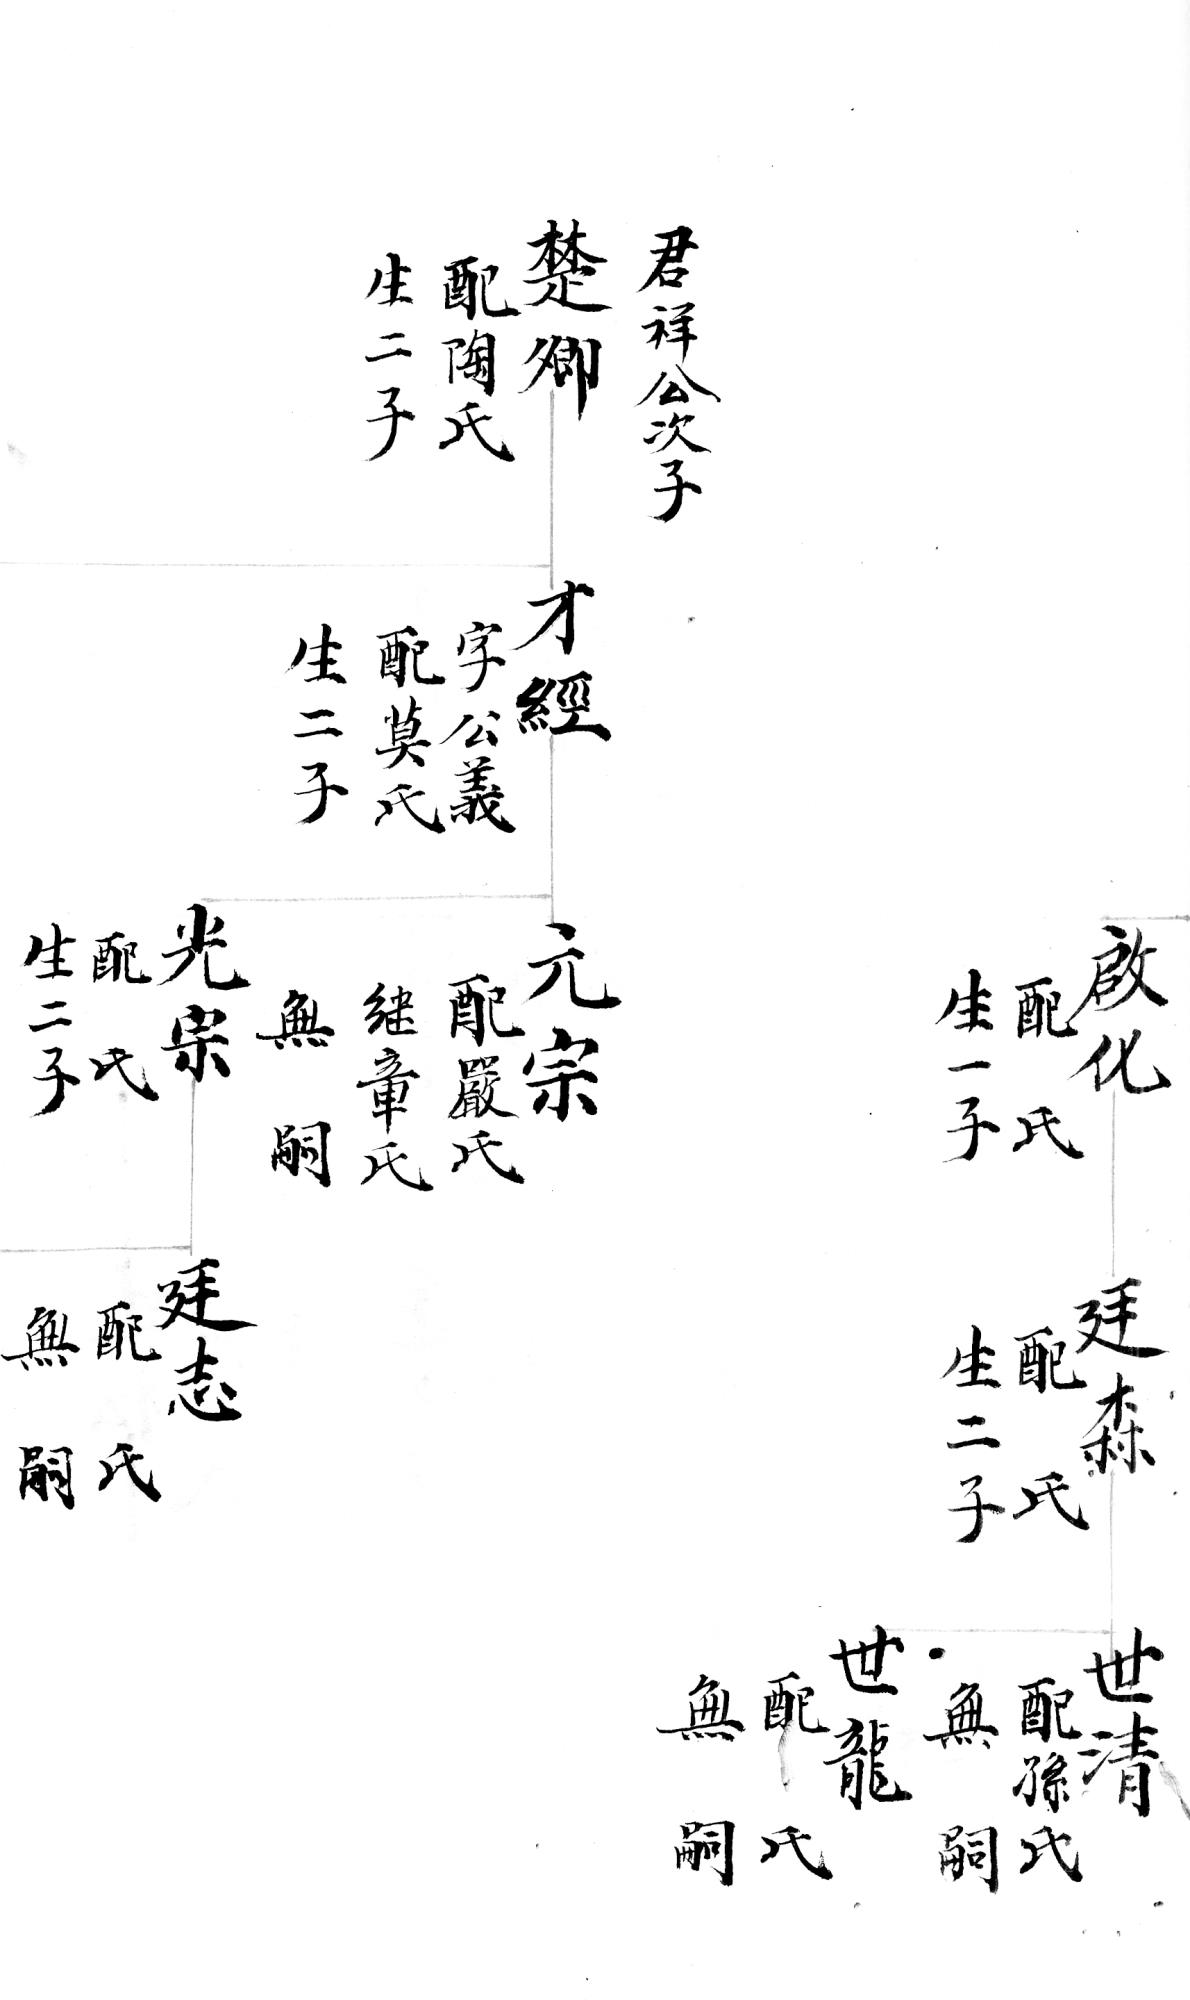 君祥公次子
楚卿
配陶氏
生二子
才經
字公義
配莫氏
生二子
啟化
配 氏
生一子
元宗
配嚴氏
継章氏
無 嗣
光宗
配 氏
生二子
廷森
配 氏
生二子
廷志
配 氏
無 嗣
世清
配孫氏
無 嗣
世龍
配 氏
無 嗣